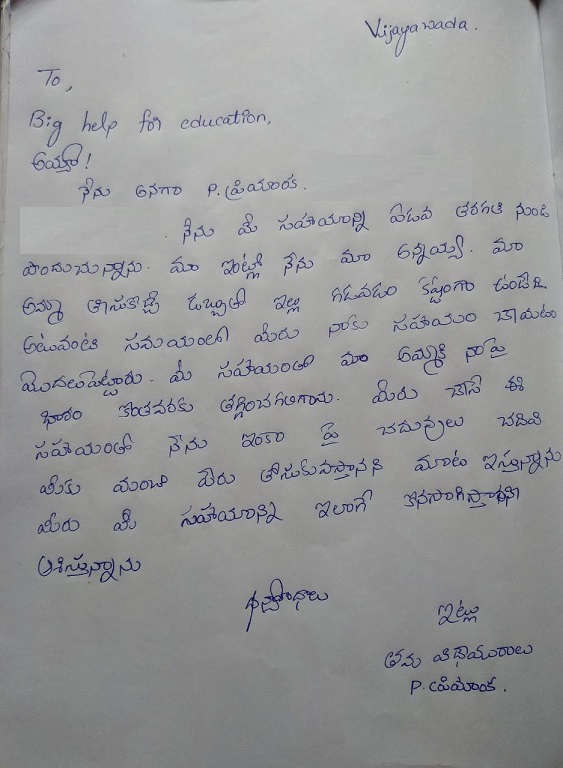 Vijayawada.
To,
Big help for education,
అయ్యా!
నేను అనగా P.ప్రియాంక.
నేను మీ సహాయాన్ని ఏడవ తరగతి నుండి
పొందుచున్నాను. మా ఇంట్లో నేను మా అన్నయ్య. మా
అమ్మా తీసుకొచ్చే డబ్బుతో ఇల్లు గడవడం కష్టంగా ఉండేది.
అటువంటి సమయంలో మీరు నాకు సహాయం చాయటం
మొదలుపెట్టారు. మీ సహాయంతో మా అమ్మకి నాపై
భారం కొంతవరకు తగ్గించగలిగాను. మీరు చేసే ఈ
సహాయంతో నేను ఇంకా పై చదువులు చదివి
మీకు మంచి పేరు తీసుకువస్తానని మాట ఇస్తున్నాను
మీరు మీ సహాయాన్ని ఇలాగే కొనసాగిస్తారని
ఆశిస్తున్నాను
ఇట్లు
తమ విధ్యార్థురాలు
P.ప్రియాంక.